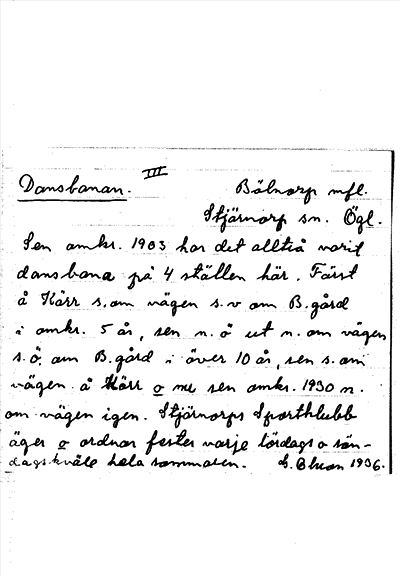 III
Dansbanan. Bölnorp mfl.
Stjärnorp sn. Ögl.
Sen omkr. 1903 har det alltså varit
dansbana på 4 ställen här. Först
å Kärr s.om vägen s.v om B.gård
i omkr. 5 år, sen n.ö ut n.om vägen
s.ö. om B.gård i över 10 år, sen s.om
vägen å Kärr o nu sen omkr. 1930 n.
om vägen igen. Stjärnorps Sportklubb
äger o ordnar fester varje lördags o sön-
dagskväll hela sommaren. 1936.